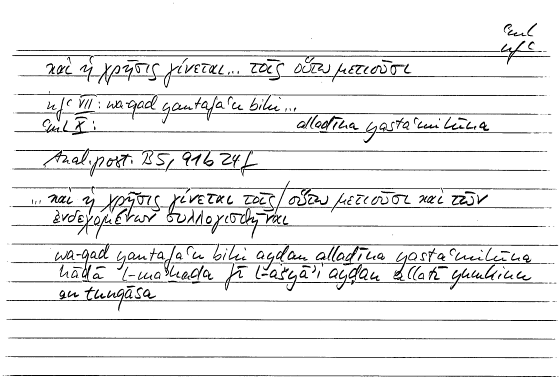 ʿml
nfʿ
καὶ ἡ χρῆσις γίνεται... τοῖς οὕτω μετιοῦσι
nfʿ VII: wa-qad yantafaʿu bihi...
ʿml X: allaḏīna yastaʿmilūna
Anal.post. B5, 91b 24f
... καὶ ἡ χρῆσις γίνεται τοῖς/οὕτω μετιοῦσι καὶ τῶν
ἐνδεχομένων συλλογισθῆναι
wa-qad yantafaʿu bihi ayḍan allaḏīna yastaʿmilūna
hāḏā l-maʾḫaḏa fī l-ašyāʾi ayḍan allatī yumkinu
an tunqāsa